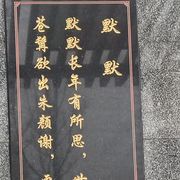 默 默
默默长年有所思，
苍髯欲出朱颜谢，